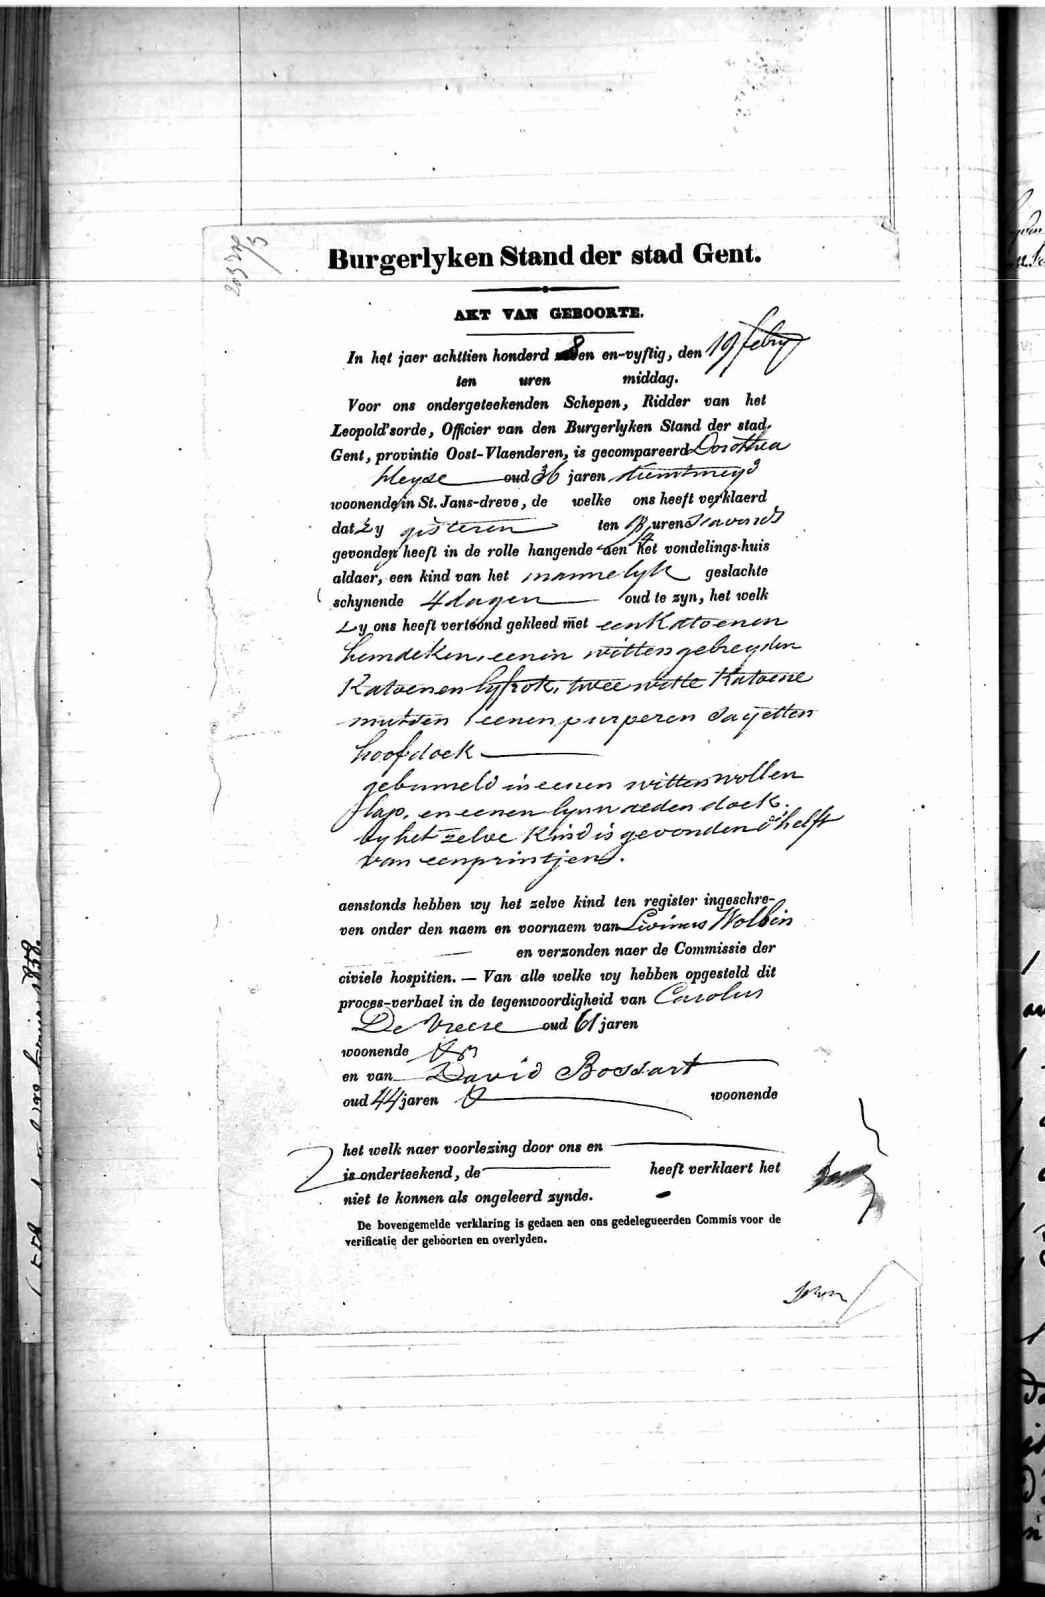 Burgerlyken Stand der stad Gent.
AKT VAN GEBOORTE.
In het jaer achttien honderd 8 en en-vyftig, den 19 febry
ten uren middag.
Voor ons ondergeteekenden Schepen, Ridder van het
Leopold'sorde, Officier van den Burgerlyken Stand der stad
Gent, provintie Oost-Vlaenderen, is gecompareerd Dorothea
Heyse oud 36 jaren
woonende in St. Jans-dreve, de welke ons heeft verklaerd
dat Zy gisteren ten uren s'avonds
gevonden heeft in de rolle hangende aen het vondelings-huis
aldaer, een kind van het mannelyk geslachte
schynende 4 dagen oud te zyn, het welk
Zy ons heeft vertoond gekleed met een Katoenen
hemdeken, eenen witten gebreyden
Katoenen lyfrok, twee witte Katoene
mutsen, eenen purperen sayetten
hoofdoek
gebunneld in eenen witten wollen
flap, en eenen lynwaeden doek,
by het zelve Kind is gevonden d'helft
van een printjen.
aenstonds hebben wy het zelve kind ten register ingeschre-
ven onder den naem en voornaem van Livinus Wolbin
en verzonden naer de Commissie der
civiele hospitien. — Van alle welke wy hebben opgesteld dit
proces-verbael in de tegenwoordigheid van Carolus
De Vreese oud 61 jaren
woonende
en van David Bossart
oud 44 jaren woonende
het welk naer voorlezing door ons en
is onderteekend, de heeft verklaert het
niet te konnen als ongeleerd zynde.
De bovengemelde verklaring is gedaen aen ons gedelegueerden Commis voor de
verificatie der geboorten en overlyden.